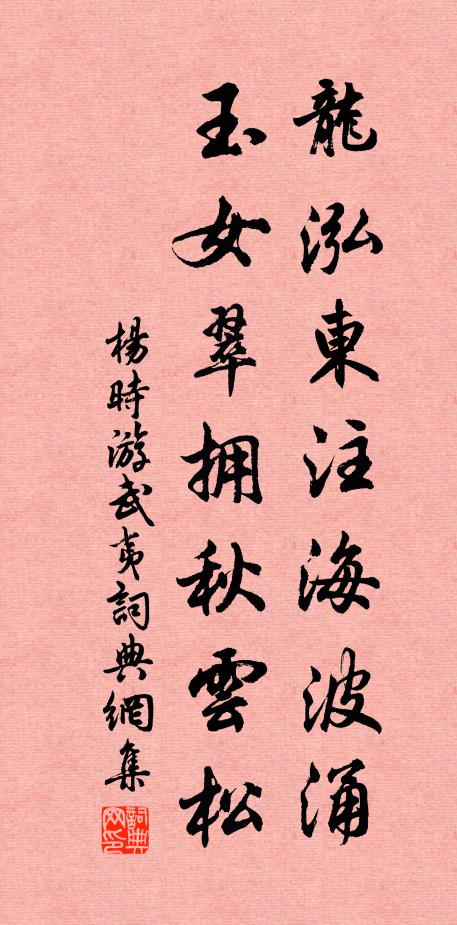 龍泓東注海波涌
玉女翠拥秋雲松
楊時游武夷詞典網集
詞典网印